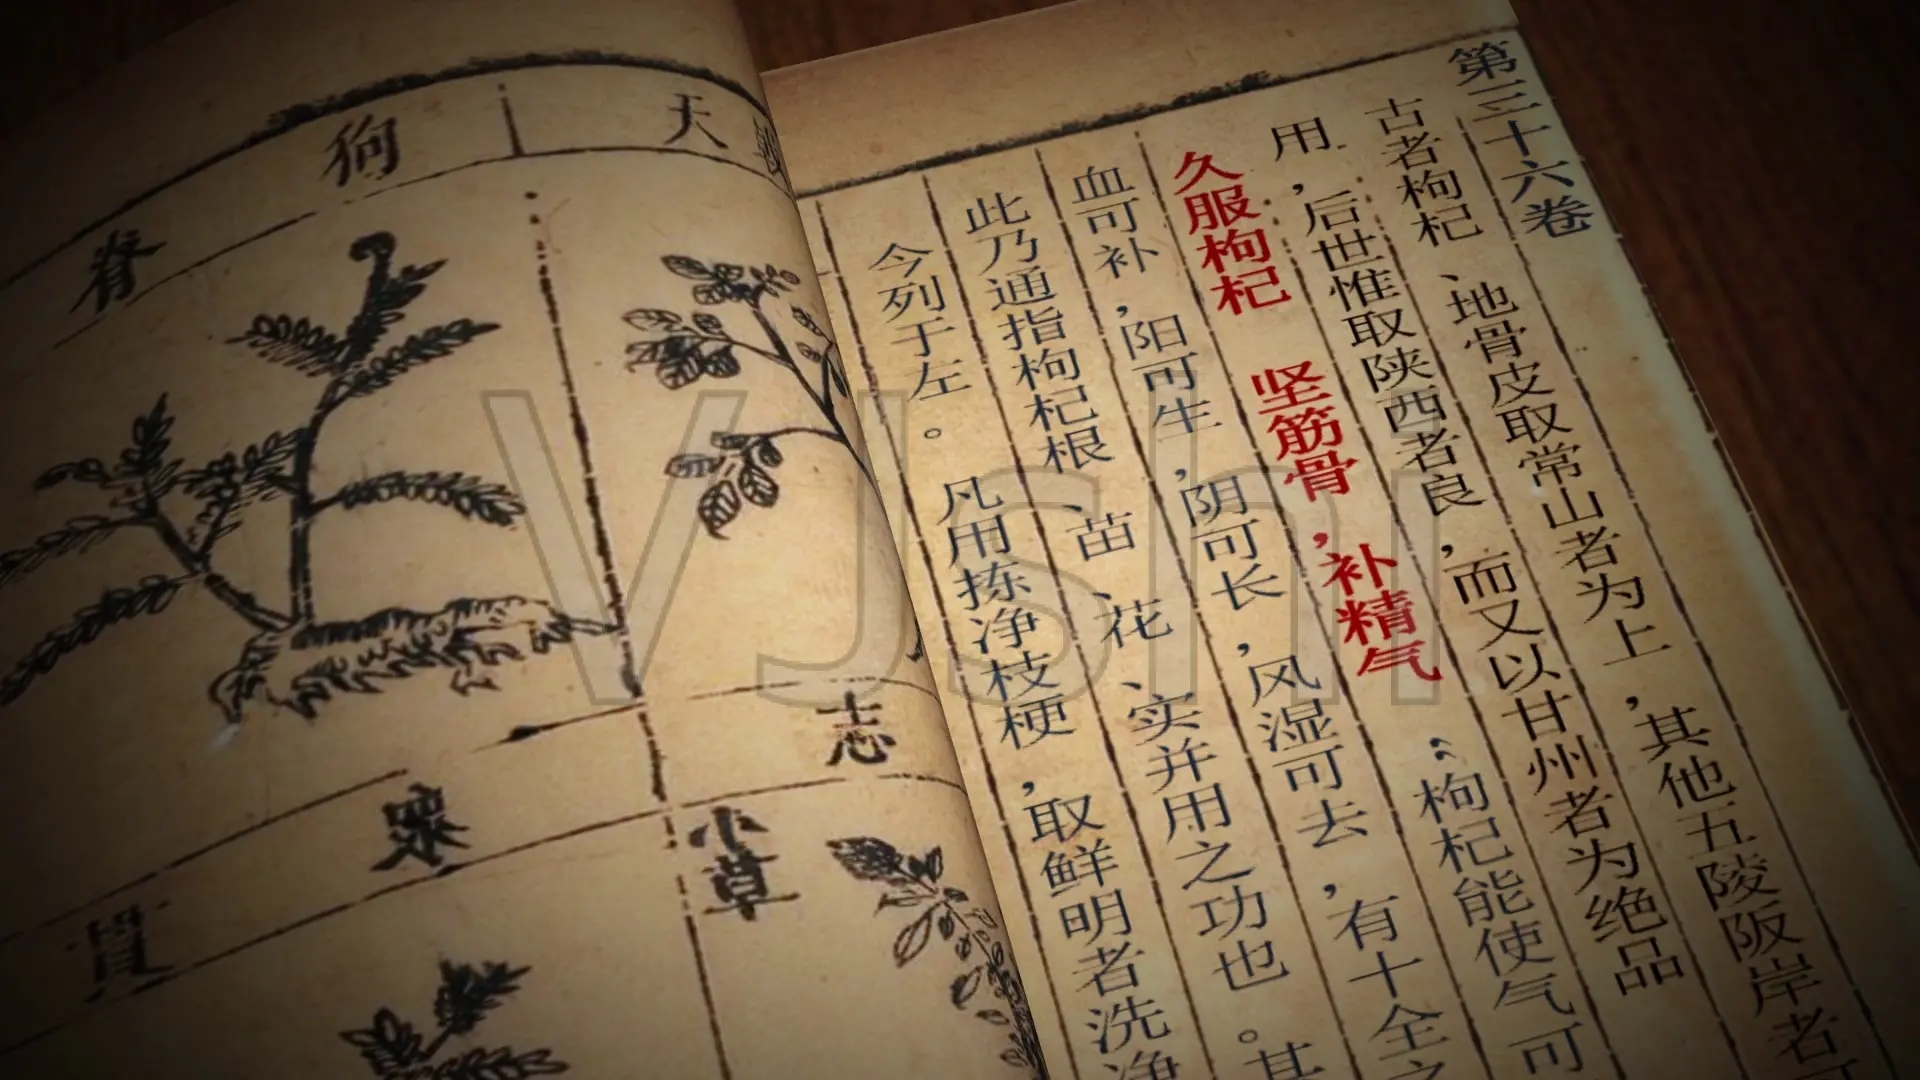 第三十六卷
古者枸杞、地骨皮取常山者为上，其他五陵阪岸者可
用，后世惟取陕西者良，而又以甘州者为绝品
久服枸杞 坚筋骨，补精气 “枸杞能使气可
血可补，阳可生，阴可长，风湿可去，有十全之
此乃通指枸杞根、苗、花、实并用之功也。其
今列于左。凡用拣净枝梗，取鲜明者洗净
天
狗
脊
志
小草
VJshi